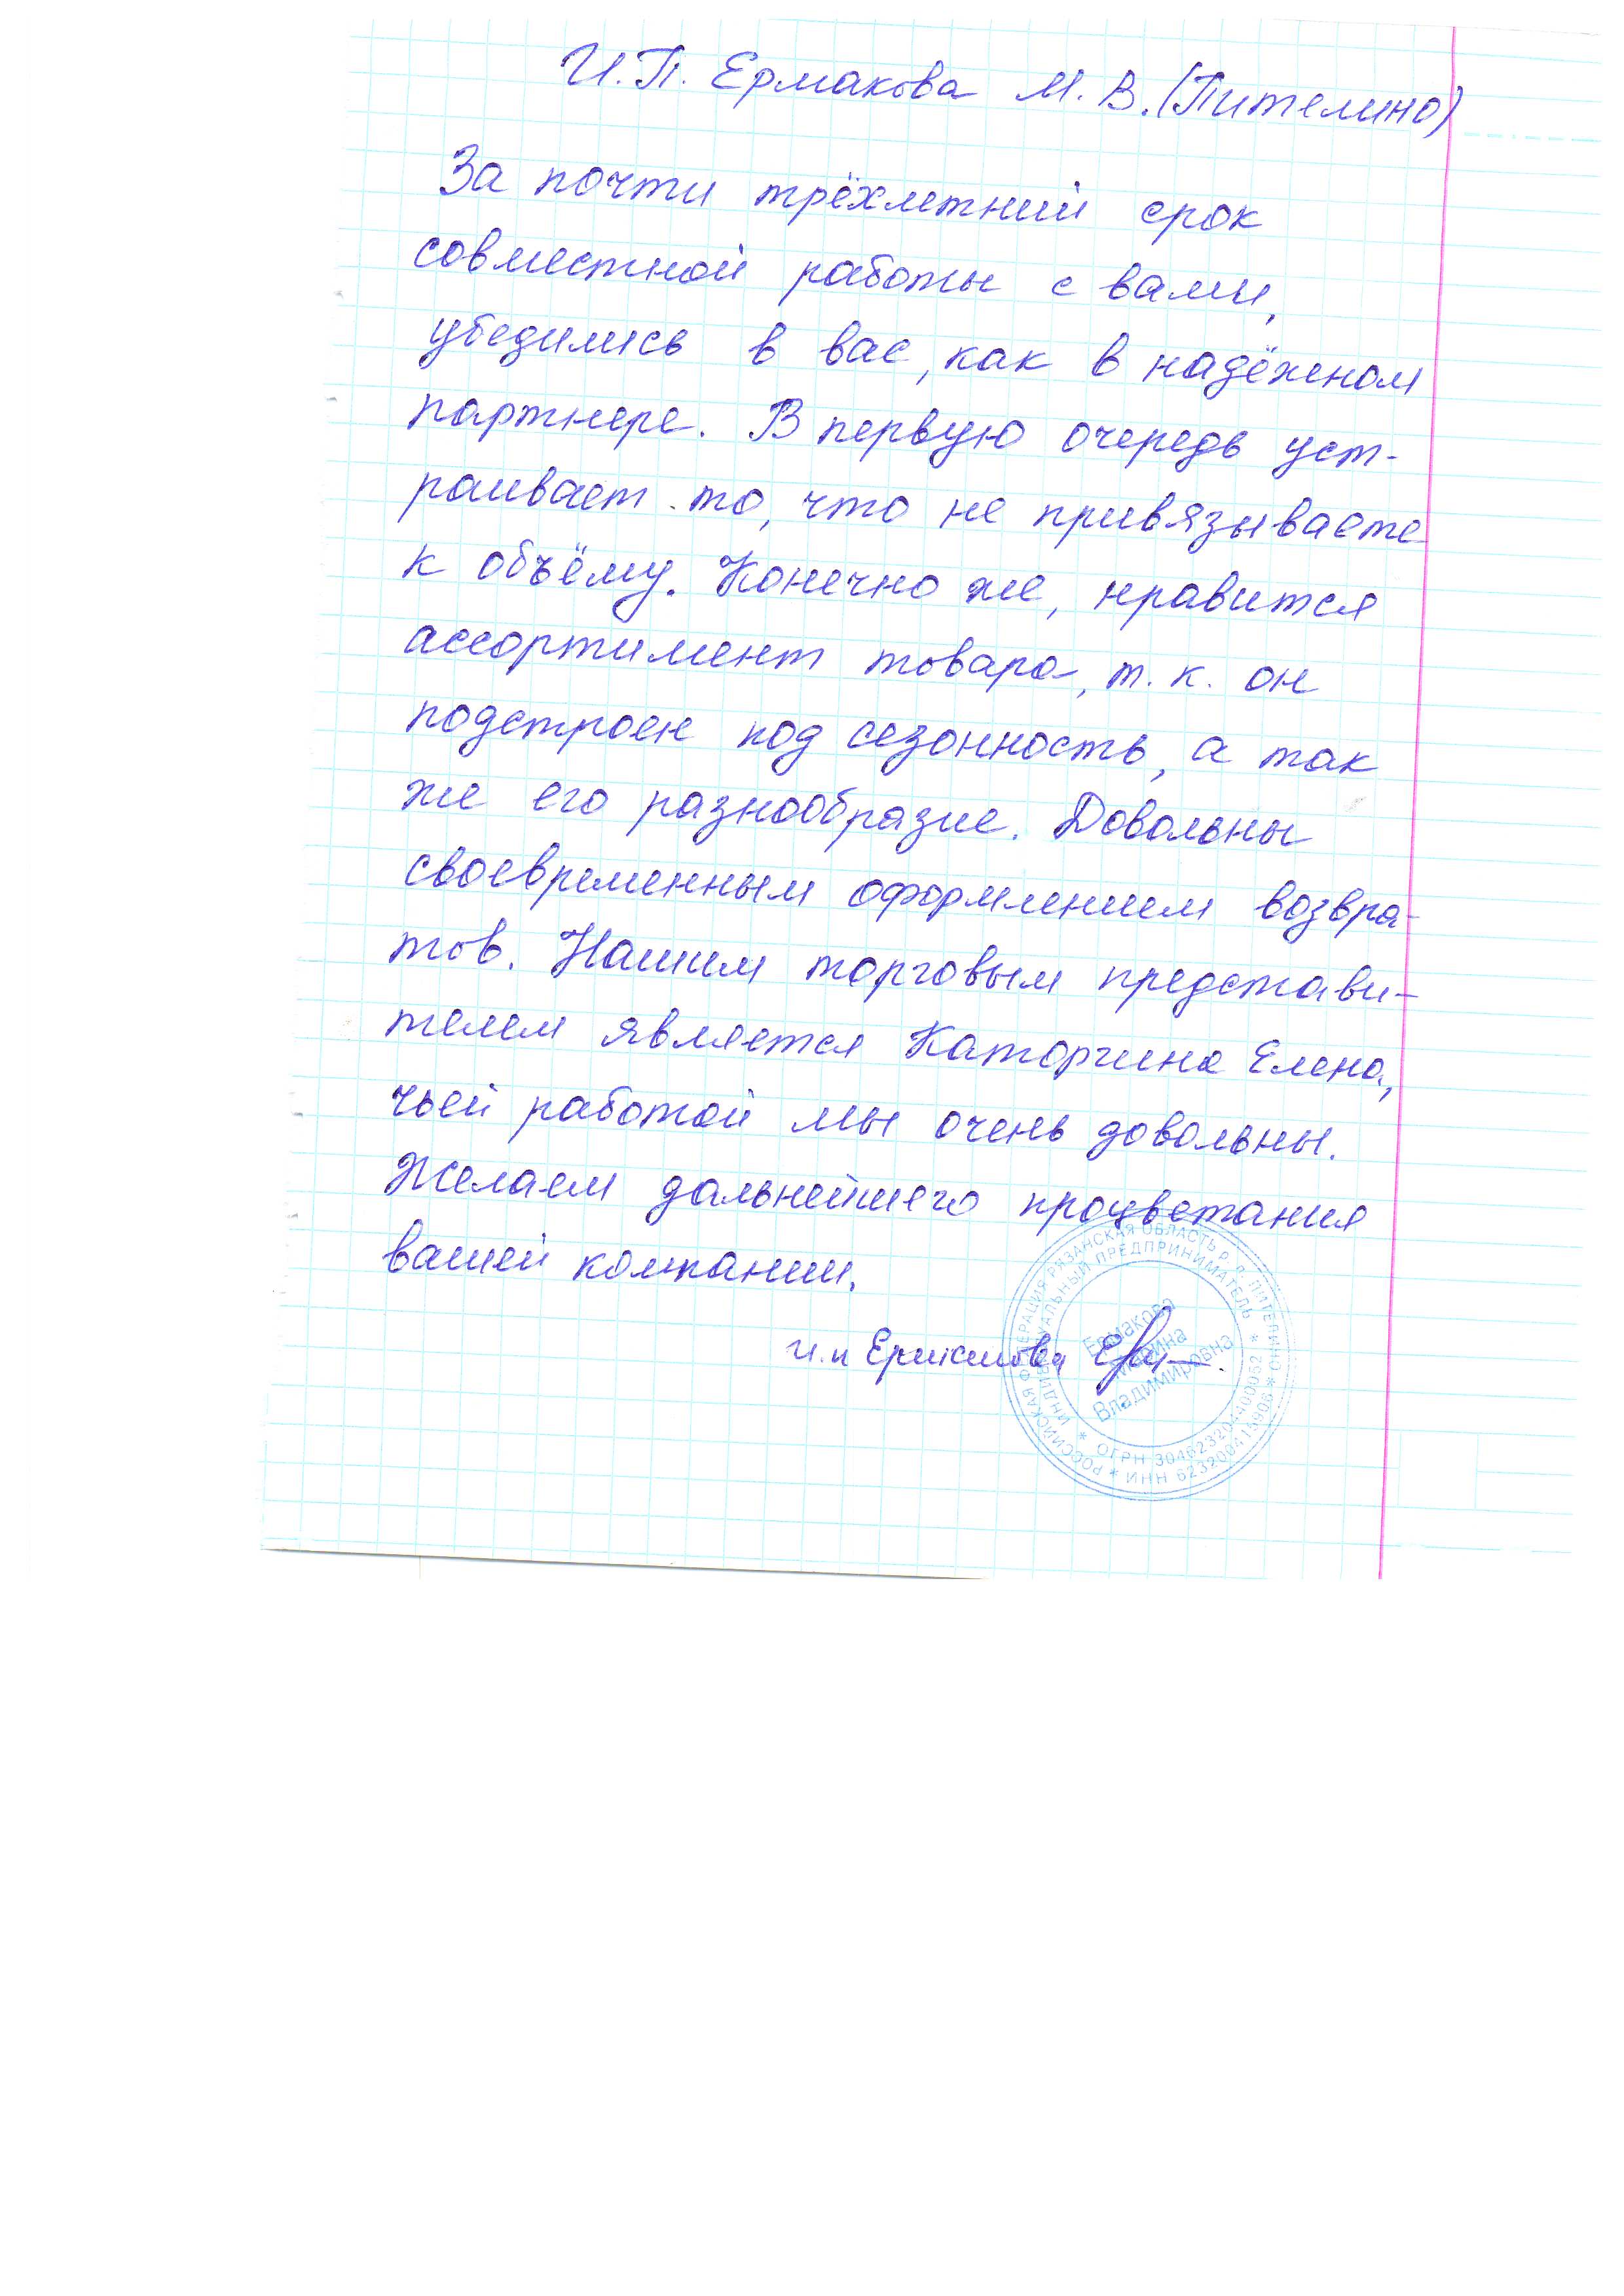 И.П. Ермакова М.В.(Пителино)
За почти трёхлетний срок
совместной работы с вами,
убедились в вас, как в надёжном
партнере. В первую очередь уст-
раивает то, что не привязываете
к объёму. Конечно же, нравится
ассортимент товара, т.к. он
подстроен под сезонность, а так
же его разнообразие. Довольны
своевременным оформлением возвра-
тов. Нашим торговым представи-
телем является Каторгина Елена,
чьей работой мы очень довольны.
Желаем дальнейшего процветания
вашей компании.
и.п Ермакова
РОССИЙСКАЯ ФЕДЕРАЦИЯ РЯЗАНСКАЯ ОБЛАСТЬ р.п. ПИТЕЛИНО
ИНДИВИДУАЛЬНЫЙ ПРЕДПРИНИМАТЕЛЬ
Ермакова
Марина
Владимировна
* ОГРН 304623204400052 *
* ИНН